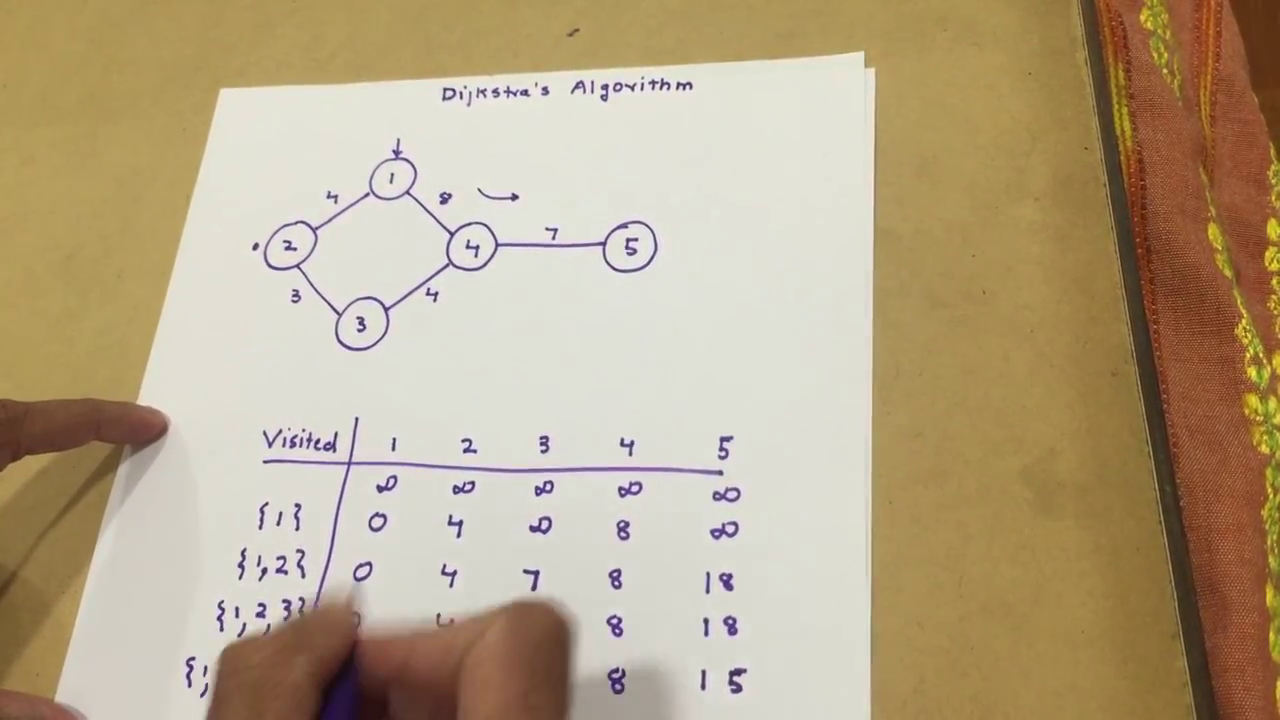 Dijkstra's Algorithm
1
4 8
2 4 7 5
3 4
3
Visited 1 2 3 4 5
∞ ∞ ∞ ∞ ∞
{1} 0 4 ∞ 8 ∞
{1,2} 0 4 7 8 18
{1,2,3} 8 18
{1, 8 15